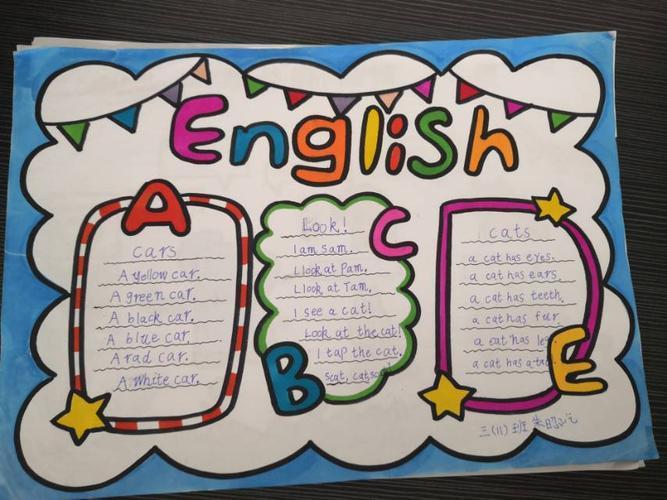 English
A
cars
A yellow car.
A green car.
A black car.
A blue car.
A rad car.
A White car.
B
C
Look!
I am sam.
I look at Pam.
I look at Tam.
I see a cat!
Look at the cat!
I tap the cat.
scat, cat, scat!
E
cats
a cat has eyes.
a cat has ears.
a cat has teeth.
a cat has fur.
a cat has
a cat has a
三(11)班 朱